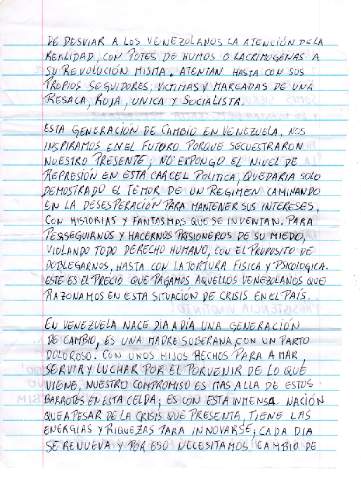 DE DESVIAR A LOS VENEZOLANOS LA ATENCIÓN DE LA
REALIDAD, CON POTES DE HUMOS O LACRIMOGENAS A
SU REVOLUCIÓN MISMA, ATENTAN HASTA CON SUS
PROPIOS SEGUIDORES, VICTIMAS Y MARCADAS DE UNA
RESACA, ROJA, UNICA Y SOCIALISTA.
ESTA GENERACIÓN DE CAMBIO EN VENEZUELA, NOS
INSPIRAMOS EN EL FUTURO PORQUE SECUESTRARON
NUESTRO PRESENTE; NO EXPONGO EL NIVEL DE
REPRESIÓN EN ESTA CARCEL POLITICA, QUEDARIA SOLO
DEMOSTRADO EL TEMOR DE UN REGIMEN CAMINANDO
EN LA DESESPERACIÓN PARA MANTENER SUS INTERESES,
CON HISTORIAS Y FANTASMAS QUE SE INVENTAN, PARA
PERSEGUIRNOS Y HACERNOS PRISIONEROS DE SU MIEDO,
VIOLANDO TODO DERECHO HUMANO, CON EL PROPOSITO DE
DOBLEGARNOS, HASTA CON LA TORTURA FISICA Y PSICOLOGICA.
ESTE ES EL PRECIO QUE PAGAMOS AQUELLOS VENEZOLANOS QUE
RAZONAMOS EN ESTA SITUACIÓN DE CRISIS EN EL PAÍS.
EN VENEZUELA NACE DIA A DÍA UNA GENERACIÓN
DE CAMBIO, ES UNA MADRE SOBERANA, CON UN PARTO
DOLOROSO. CON UNOS HIJOS HECHOS PARA AMAR,
SERVIR Y LUCHAR POR EL PORVENIR DE LO QUE
VIENE, NUESTRO COMPROMISO ES MAS ALLA DE ESTOS
BARROTES EN ESTA CELDA; ES CON ESTA INMENSA NACIÓN
QUE APESAR DE LA CRISIS QUE PRESENTA, TIENE LAS
ENERGIAS Y RIQUEZAS PARA INNOVARSE; CADA DIA
SE RENUEVA Y POR ESO NECESITAMOS CAMBIO DE